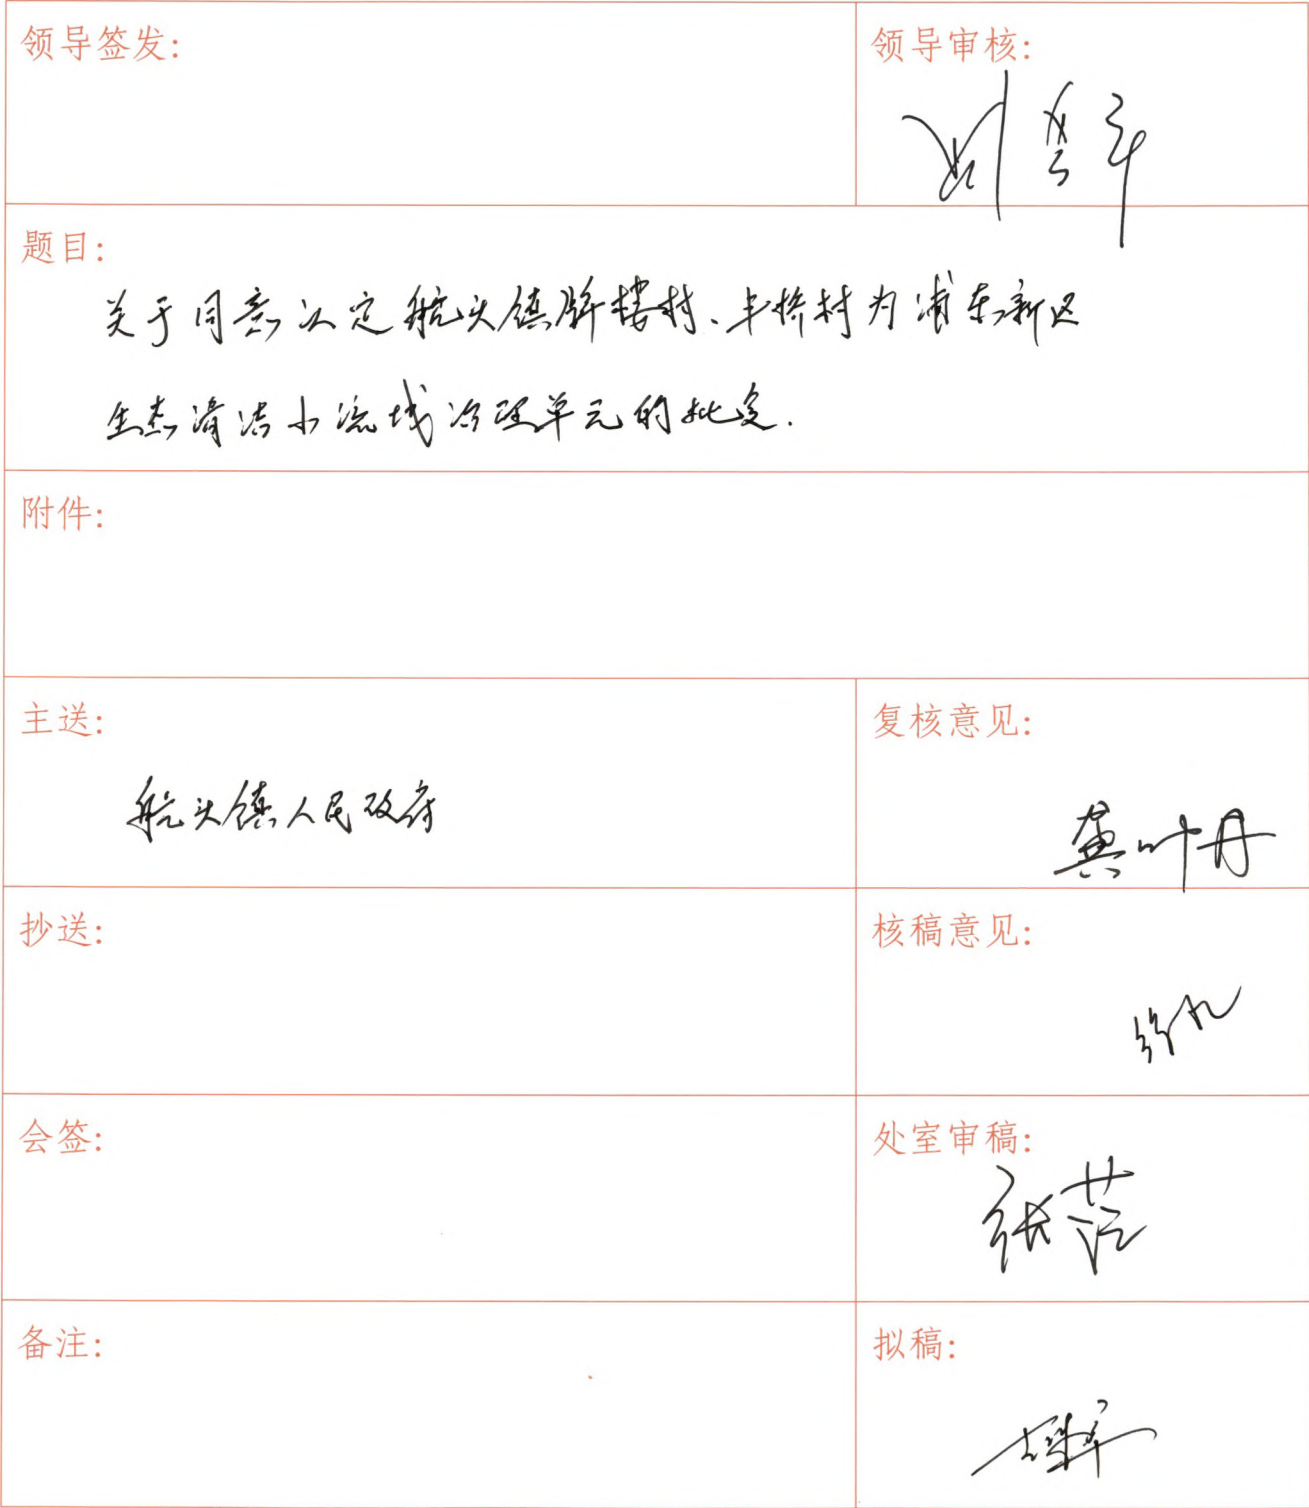 领导签发:
领导审核:
题目:
关于同意认定航头镇牌楼村、丰桥村为浦东新区
生态清洁小流域治理单元的批复.
附件:
主送:
航头镇人民政府
复核意见:
龚叶丹
抄送:
核稿意见:
会签:
处室审稿:
张范
备注:
拟稿: